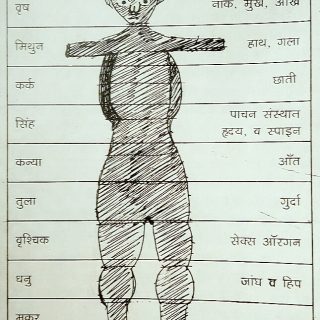 वृष नाक, मुख, आँख
मिथुन हाथ, गला
कर्क छाती
सिंह पाचन संस्थान
हृदय, व स्पाइन
कन्या आँत
तुला गुर्दा
वृश्चिक सेक्स ऑरगन
धनु जांघ व हिप
मकर